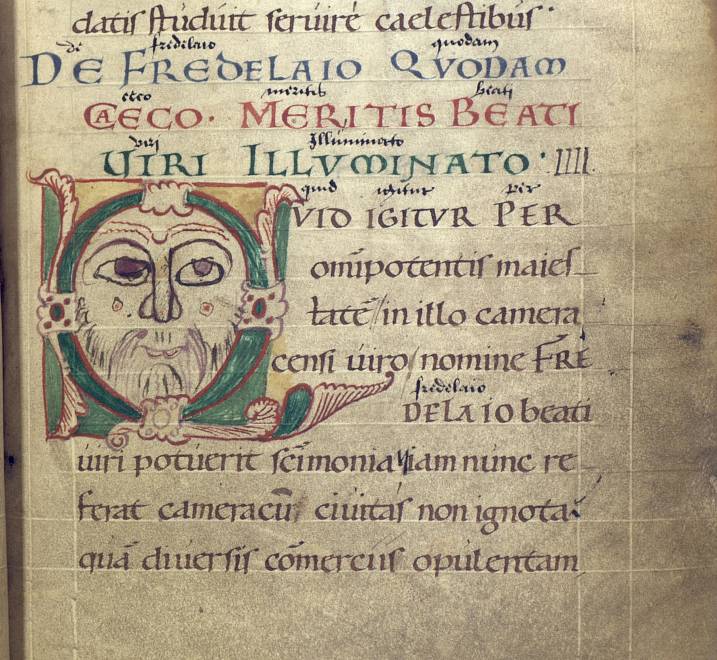 datis studuit seruire caelestibus.
de fredelaio quodam
DE FREDELAIO QVODAM
ceco meritis beati
CAECO. MERITIS BEATI
viri Illuminato
VIRI ILLVMINATO. IIII.
quid igitur per
QVID IGITVR PER
om̅ipotentis maies
tate̅/in illo camera
censi uiro/nomine FRE
fredelaio
DELAIO beati
uiri potuerit sc̅imonia iam nunc re
ferat cameracu̅ ciuitas non ignota
qua̅ diuersis co̅merciis opulentam